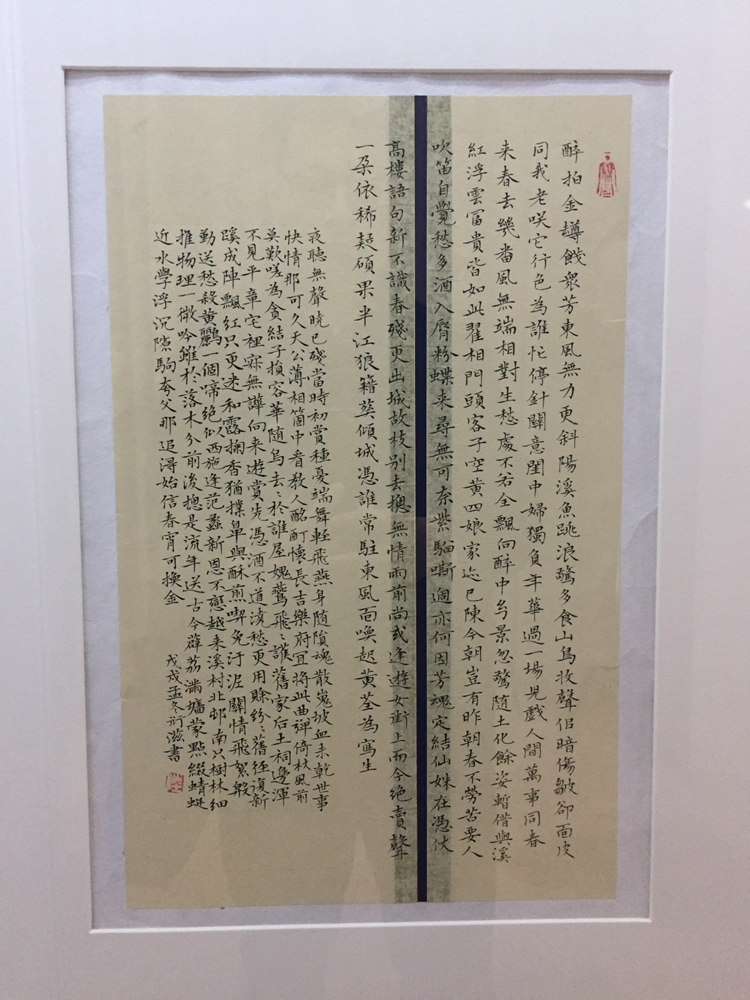 醉拍金罇餞眾芳東風無力更斜陽溪魚跳浪驚多食山鳥收聲但暗傷皺卻面皮
同我老咲它行色為誰忙停針關意閨中婦獨負年華過一場兒戲人間萬事同春
来春去幾番風無端相對生愁處不若全飄向醉中乡景忽驚隨土化餘姿暫借與溪
紅浮雲冨貴皆如此翟相門頭客子空黄四娘家迹已陳今朝豈有昨朝春不勞苦要人
吹笛自覺愁多酒入脣粉蝶来尋無可奈紫騮嘶過亦何因芳魂定結仙姝在憑仗
高樓語句新不識春殘更出城故枝别去摠無情雨前尚或逢遊女街上而今絶賣聲
一朶依稀趂碩果半江狼籍葵傾城憑誰常駐東風面喚起黄荃為寫生
夜聽無聲曉已殘當時初賞種憂端舞輕飛燕身随損魂散嵬坡血未乾世事
快情那可久天公薄相箇中看教人酩酊懷長吉樂府冝將此曲彈倚杖風前
莫歎嗟為貪結子損容華随鳥去去於誰屋媿鶯飛飛護舊家后土祠邊渾
不見平章宅裡寂無譁向来遊賞先憑酒不道澆愁更用賖紛紛舊徑復新
蹊成陣飄紅只更迷和露掬香猶撲鼻與酥煎喫免汙泥關情飛絮般
勤送愁殺黄鸝一個啼絶似西施逢范蠡新恩不戀越来溪村北邨南只樹林細
推物理一微吟雖於落木分前後摠是流年送古今薜荔滿墻蒙點綴蜻蜓
近水學浮沉隙駒夸父那追淂始信春宵可換金
戊戌孟冬衍滋書